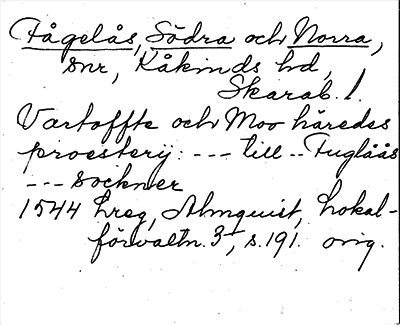 Fågelås, Södra och Norra,
snr, Kåkinds hd,
Skarab. l.
Vartoffte och Moo häredes
proesterij: --- till -- Fuglåås
--- sockner
1544 hreg, Almquist, Lokal-
förvaltn. 3, s. 191. orig.